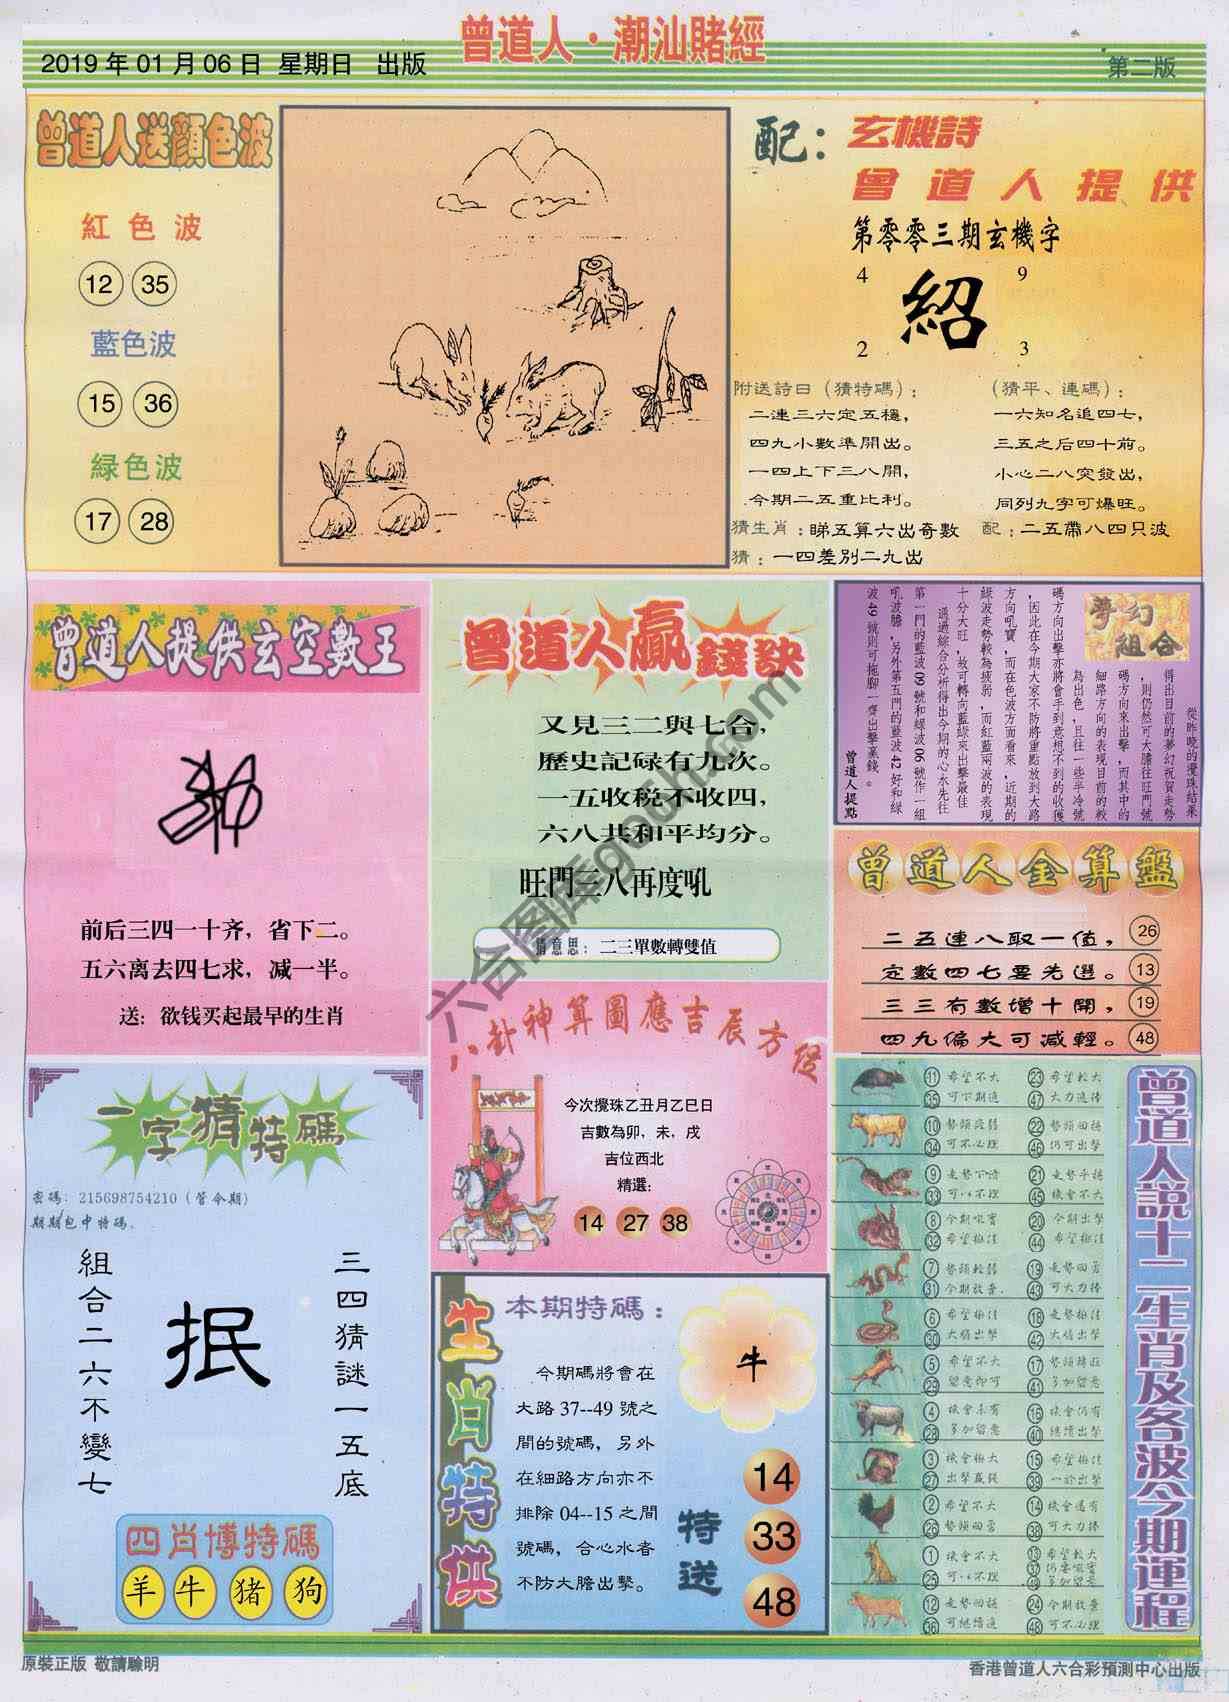 曾道人·潮汕賭經
2019年01月06日 星期日 出版
第二版
曾道人送顏色波
紅色波
12 35
藍色波
15 36
緑色波
17 28
配：
玄機詩
曾道人提供
第零零三期玄機字
4 9
紹
2 3
附送詩曰（猜特碼）：
二連三六定五穩，
四九小數準開出。
一四上下三八開，
今期二五重比利。
（猜平、連碼）：
一六知名追四七，
三五之后四十前。
小心二八突發出，
同列九字可爆旺。
猜生肖：睇五算六出奇數
配：二五帶八四只波
猜：一四差別二九出
曾道人提供玄空數王
前后三四一十齐，省下二。
五六离去四七求，减一半。
送：欲钱买起最早的生肖
曾道人贏錢訣
又見三二與七合，
歷史記碌有九次。
一五收税不收四，
六八共和平均分。
旺門三八再度吼
猜意思：二三單數轉雙值
夢幻組合
從昨晚的攪珠結果
得出目前的夢幻祝賀走勢
，則仍然可大膽往旺門號
碼方向來出擊，而其中的
細路方向的表現目前的較
為出色，且往一些半冷號
碼方向出擊亦將會手到意想不到的收獲
，因此在今期大家不防將重點放到大路
方向吼寶，而在色波方面看來，近期的
綠波走勢較為疲弱，而紅藍兩波的表現
十分大旺，故可轉向藍綠來出擊最佳
通過綜合分析得出今期的心水先往
第一門的藍波09號和緑波06號作一組
吼波膽，另外第五門的藍波42好和緑
波49號則可拖腳一齊出擊贏錢。
曾道人提點
曾道人金算盤
二五連八取一值， 26
定數四七要先選。 13
三三有數增十開， 19
四九偏大可減輕。 48
八卦神算圖應吉辰方位
今次攪珠乙丑月乙巳日
吉數為卯，未，戌
吉位西北
精選：
14 27 38
一字猜特碼
密碼：215698754210（管令期）
期期包中特碼.
三四猜謎一五底
抿
組合二六不變七
四肖博特碼
羊 牛 猪 狗
生肖特供
本期特碼：
今期碼將會在
大路37--49號之
間的號碼，另外
在細路方向亦不
排除04--15之間
號碼，合心水者
不防大膽出擊。
牛
特送
14
33
48
曾道人說十二生肖及各波今期運程
11 希望不大 23 希望較大
35 可下期追 47 大力追捧
10 勢頭疲弱 22 勢頭回揚
34 可不心理 46 仍可出擊
9 33 可以不理 21 45 機會不大
8 今期吼實 20 今期出擊
32 希望極佳 44 希望極佳
7 勢頭較弱 19 走勢回勇
31 今期放棄. 43 可大力捧
6 走勢極佳 18 走勢極佳
30 大膽出擊 42 大膽出擊
5 希望不大 17
29 留意即可 41 多加留意
4 機會未有 16 機會仍有
28 多加留意 40 繼續出擊
3 機會極大 15 希望極佳
27 出擊贏錢 39 一於出擊
2 希望不大 14 機會還有
26 勢頭回勇 38 可大力捧
1 機會不大 13 希望較大
25 可以不理 37 49 多加留意
12 走勢回揚 24 今期放棄
36 可繼續追 48 可以不理
六合图库go6h.com
原裝正版 敬請驗明
香港曾道人六合彩預測中心出版